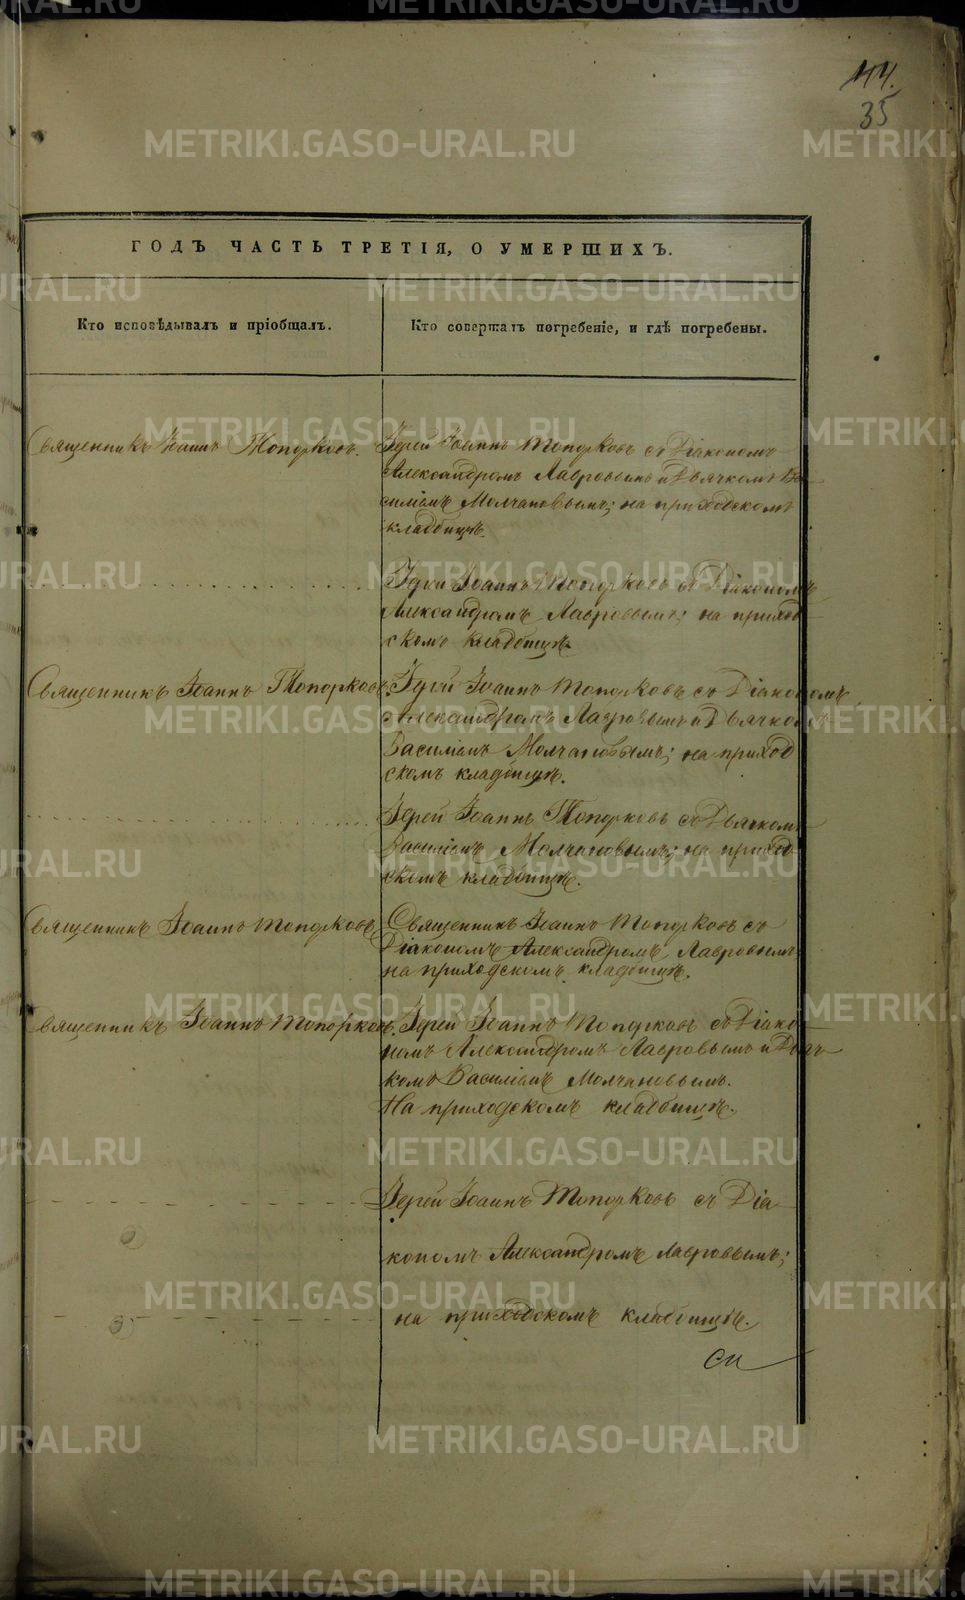 44.
35
ГОДЪ ЧАСТЬ ТРЕТІЯ, О УМЕРШИХЪ.
Кто исповѣдывалъ и пріобщалъ.
Кто совершалъ погребеніе, и гдѣ погребены.
Священникъ Іоаннъ Топорковъ.
Іерей Іоаннъ Топорковъ съ Діакономъ
Александромъ Лавровымъ и Дьячкомъ Ва-
силіемъ Молчановымъ; на приходскомъ
кладбищѣ.
Іерей Іоаннъ Топорковъ съ Діакономъ
Александромъ Лавровымъ; на приход
скомъ кладбищѣ.
Священникъ Іоаннъ Топорковъ.
Іерей Іоаннъ Топорковъ съ Діакономъ
Александромъ Лавровымъ и Дьячкомъ
Василіемъ Молчановымъ; на приход
скомъ кладбищѣ.
Іерей Іоаннъ Топорковъ съ Дьячкомъ
Василіемъ Молчановымъ; на приход
скомъ кладбищѣ.
Священникъ Іоаннъ Топорковъ
Священникъ Іоаннъ Топорковъ съ
Діакономъ Александромъ Лавровымъ
на приходскомъ кладбищѣ.
Священникъ Іоаннъ Топорковъ.
Іерей Іоаннъ Топорковъ съ Діако-
номъ Александромъ Лавровымъ и Дьяч-
комъ Василіемъ Молчановымъ.
На приходскомъ кладбищѣ.
Іерей Іоаннъ Топорковъ съ Діа
кономъ Александромъ Лавровымъ;
на приходскомъ кладбищѣ.
METRIKI.GASO-URAL.RU